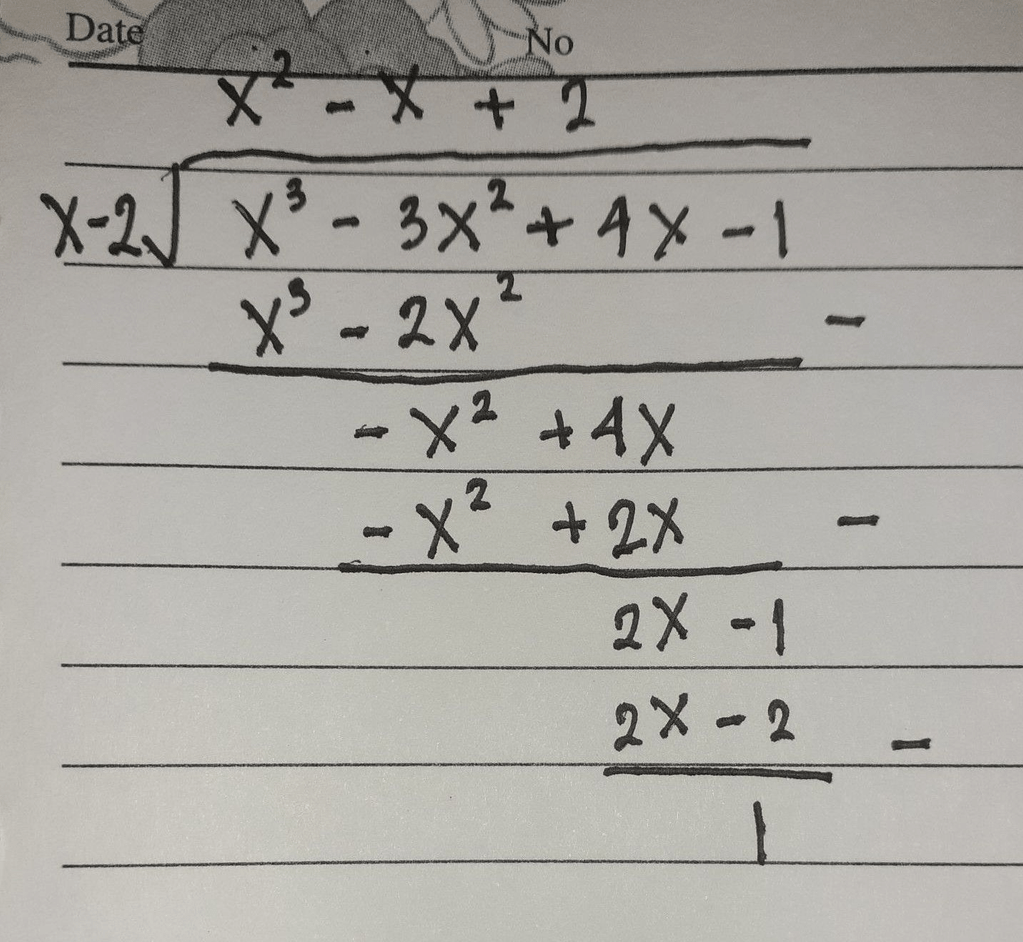 Date No
x² - x + 2
x-2√ x³ - 3x² + 4x - 1
x³ - 2x² -
- x² + 4x
- x² + 2x -
2x - 1
2x - 2 -
1